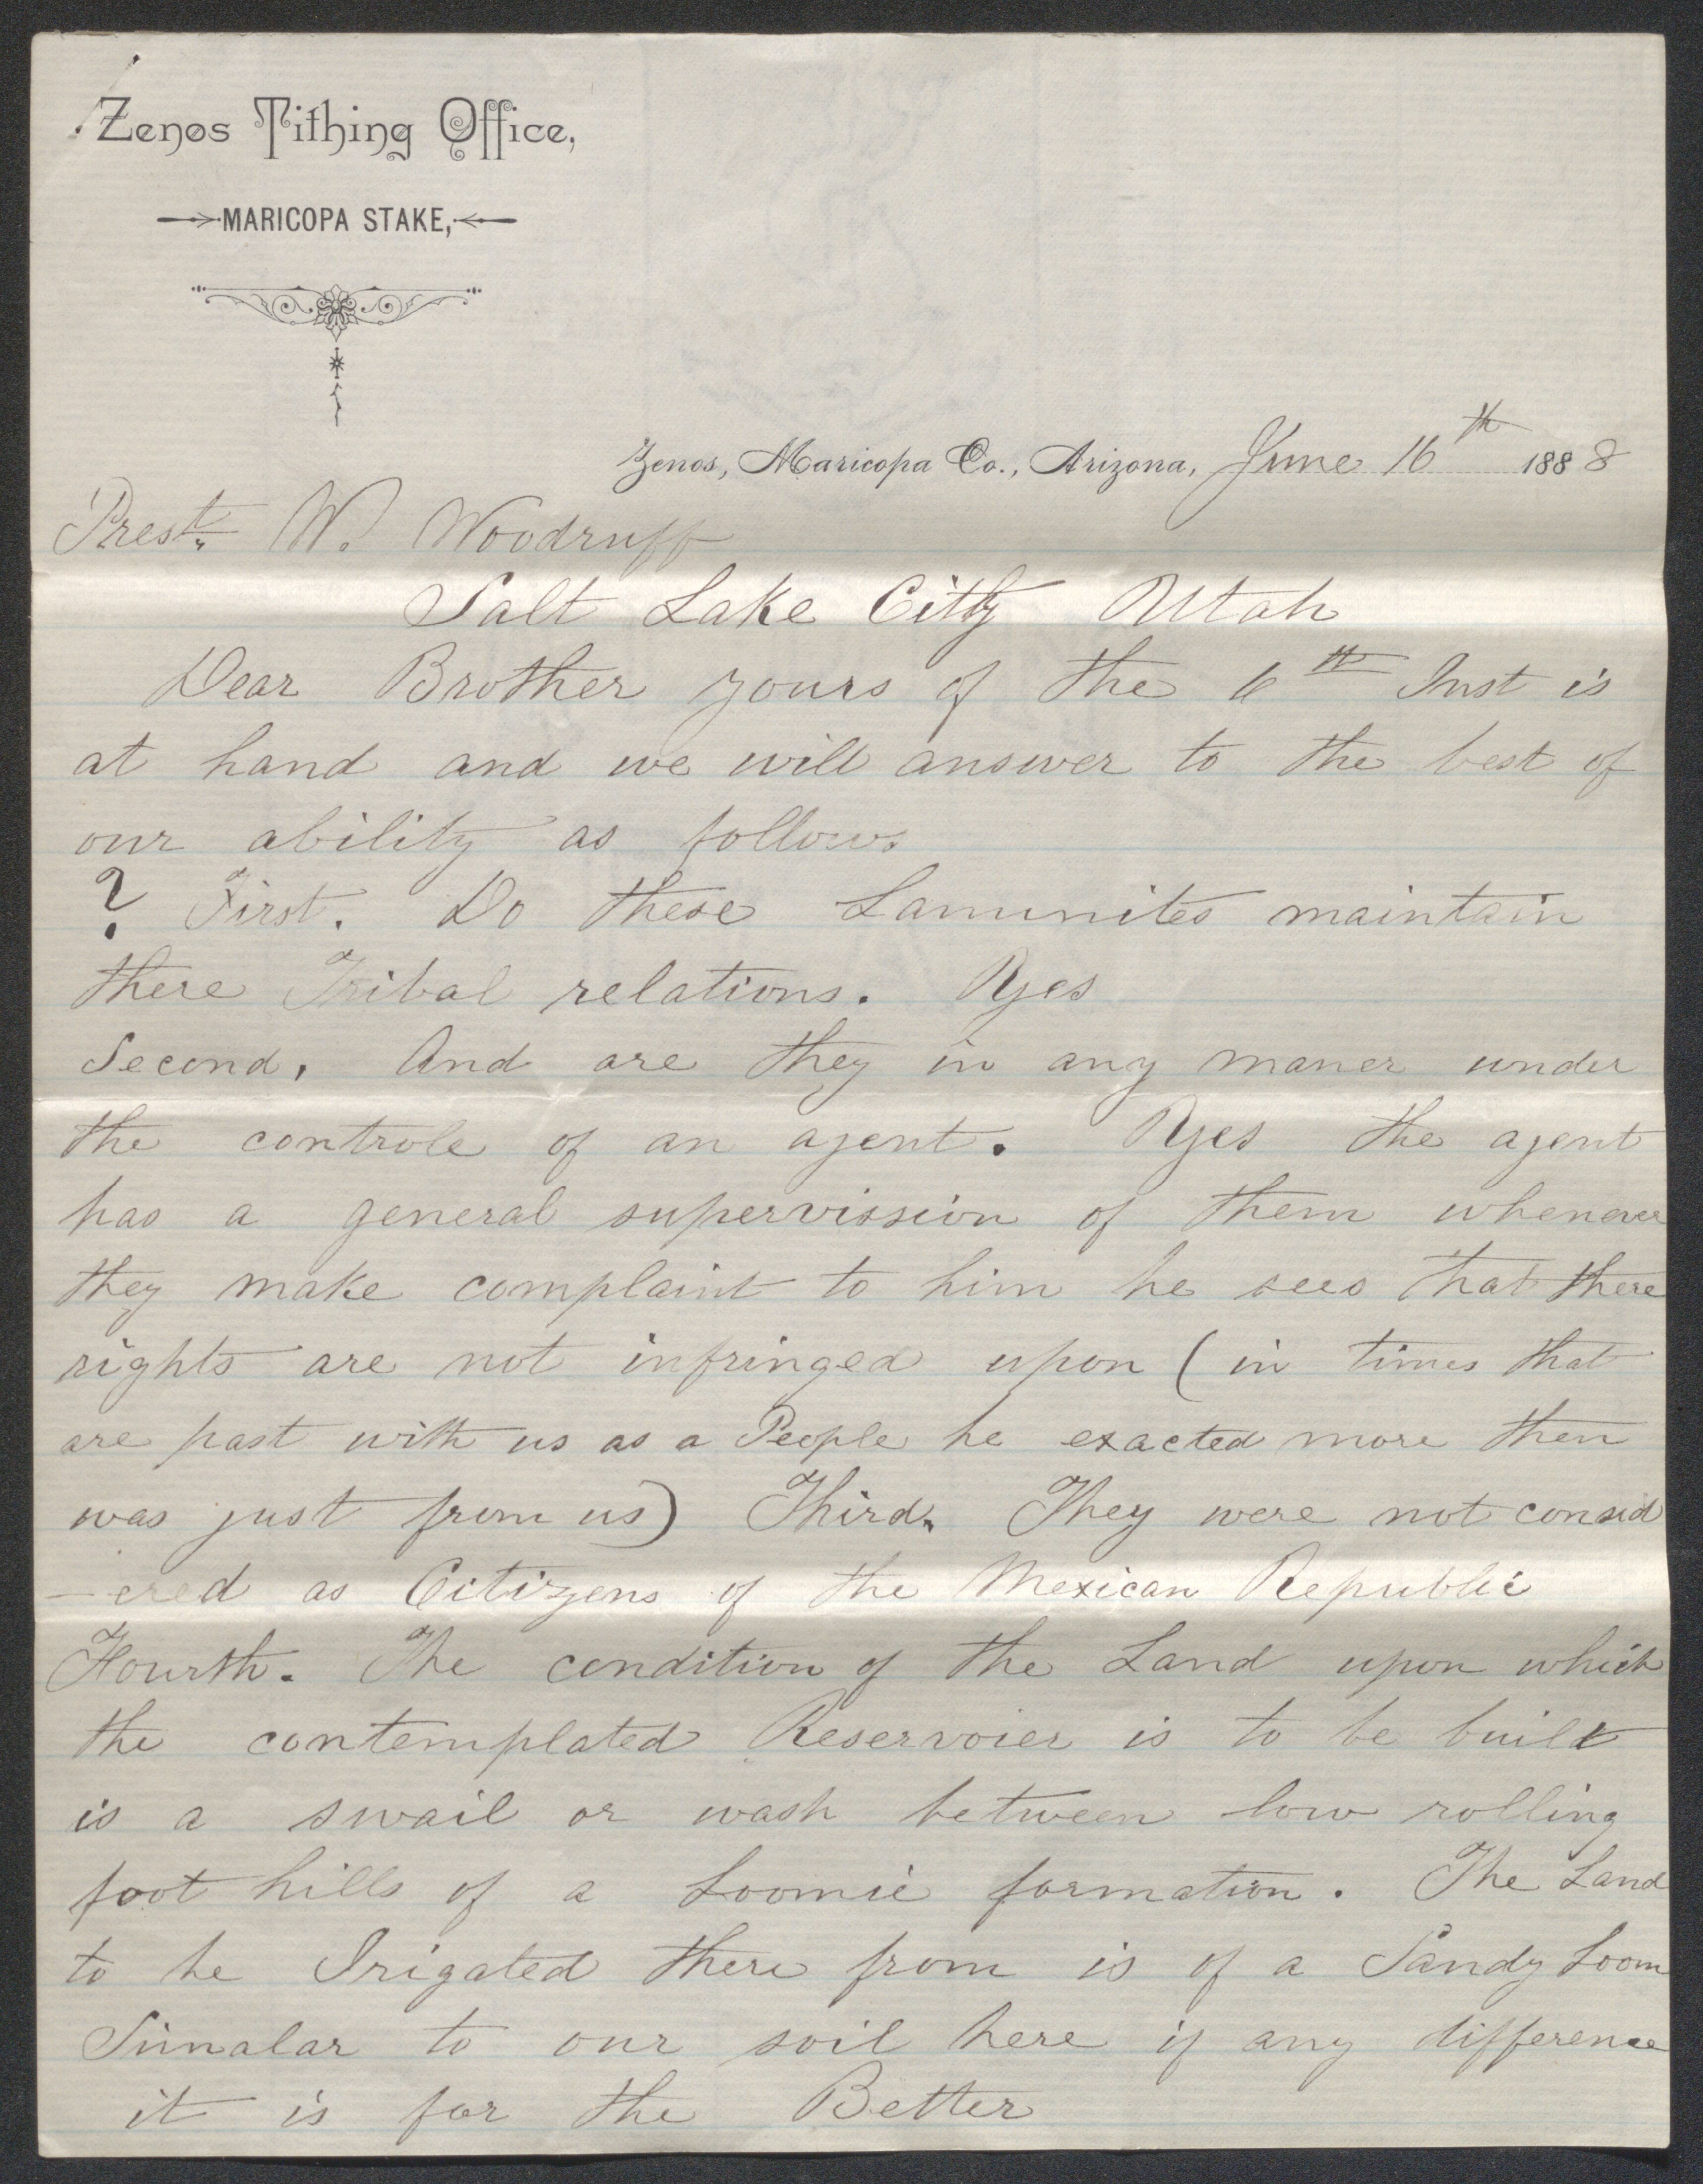 Zenos Tithing Office,
MARICOPA STAKE,
Zenos, Maricopa Co., Arizona, June 16th 1888
Prest. W. Woodruff
Salt Lake Citty Utah
Dear Brother yours of the 6th Inst is
at hand and we will answer to the best of
our ability as follows
? First. Do these Lamunites maintain
there Tribal relations. Yes
Second, And are they in any maner under
the controle of an agent. Yes the agent
has a general supervission of them whenever
they make complaint to him he sees that there
rights are not infringed upon (in times that
are past with us as a People he exacted more then
was just from us) Third. They were not consid
-ered as Citizens of the Mexican Republic
Fourth. The condition of the Land upon which
the contemplated Reservoier is to be built
is a swail or wash between low rolling
foot hills of a Loomie formation. The Land
to be Irigated there from is of a Sandy Loom
Simalar to our soil here if any difference
it is for the Better